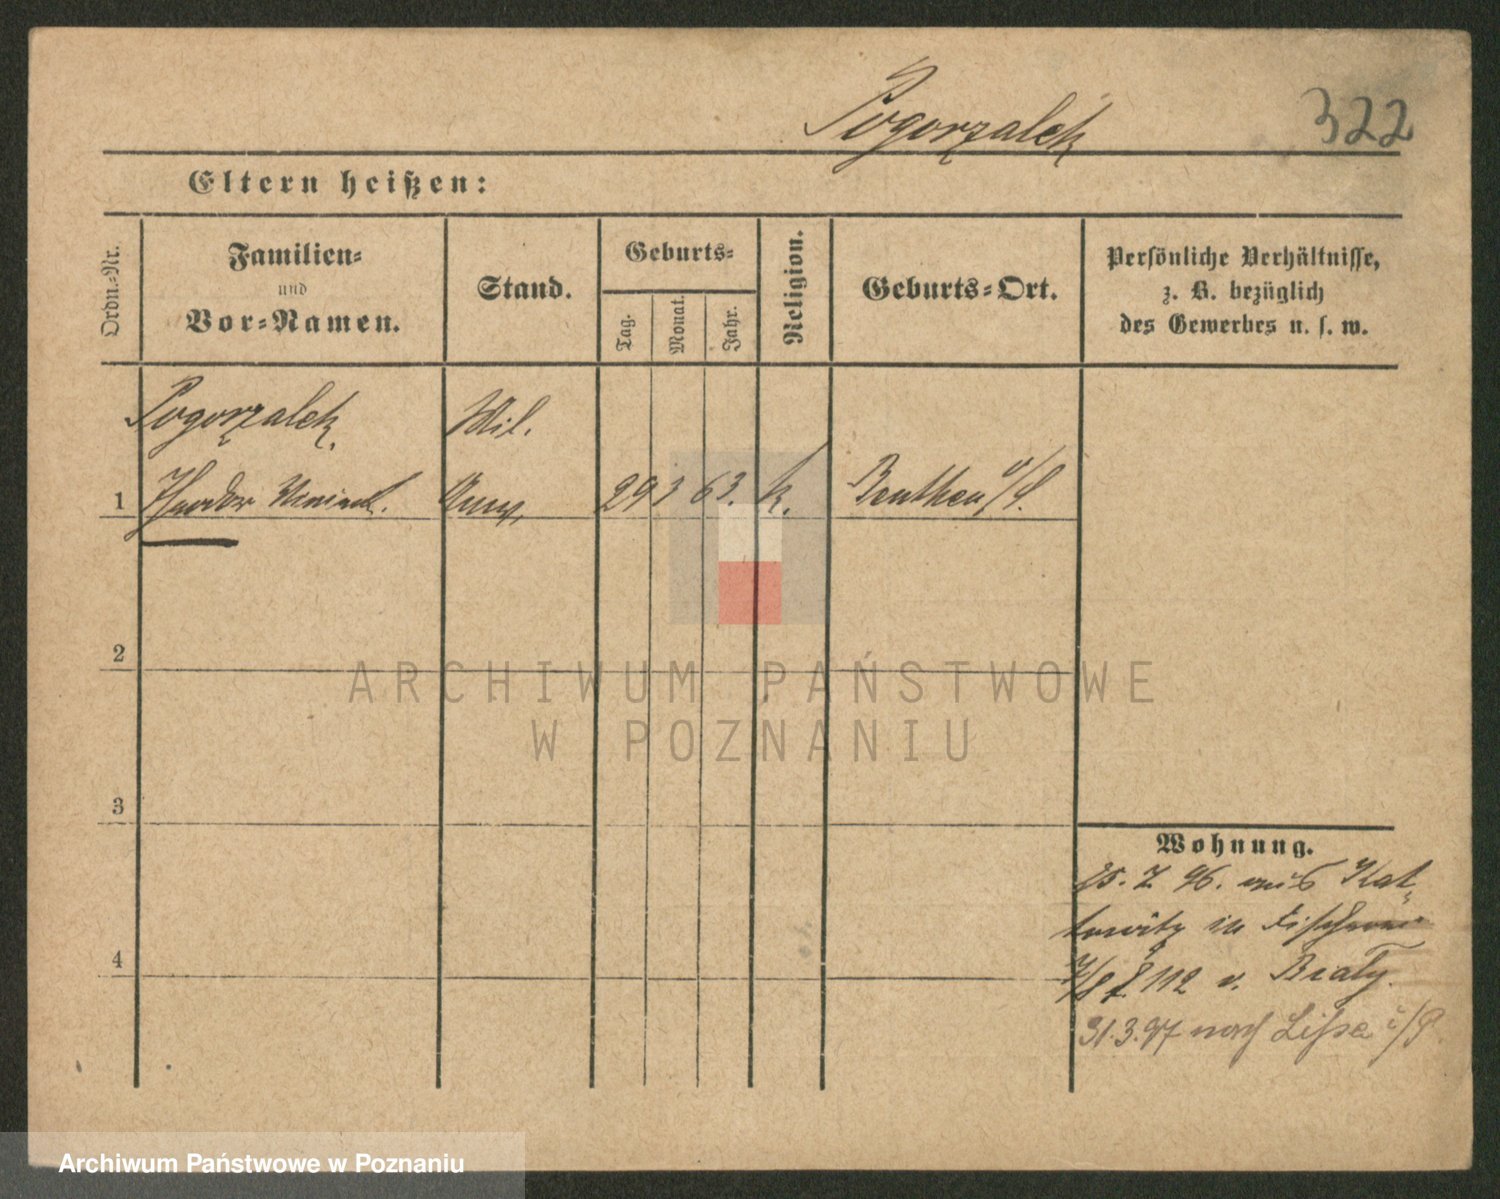 Pogorzalek
322
Eltern heißen:
Ordn.-Nr.
Familien-
und
Vor-Namen.
Stand.
Geburts-
Tag.
Monat.
Jahr.
Religion.
Geburts-Ort.
Persönliche Verhältnisse,
z. B. bezüglich
des Gewerbes u. s. w.
Pogorzalek,
Mil.
1 Theodor 29 3 63. k. Beuthen o/S.
2
ARCHIWUM PAŃSTWOWE
W POZNANIU
3
Wohnung.
25. 7. 96. aus Kat-
towitz in
4
7/8 112 v. Bialy.
31.3.97 nach Lissa i/P
Archiwum Państwowe w Poznaniu